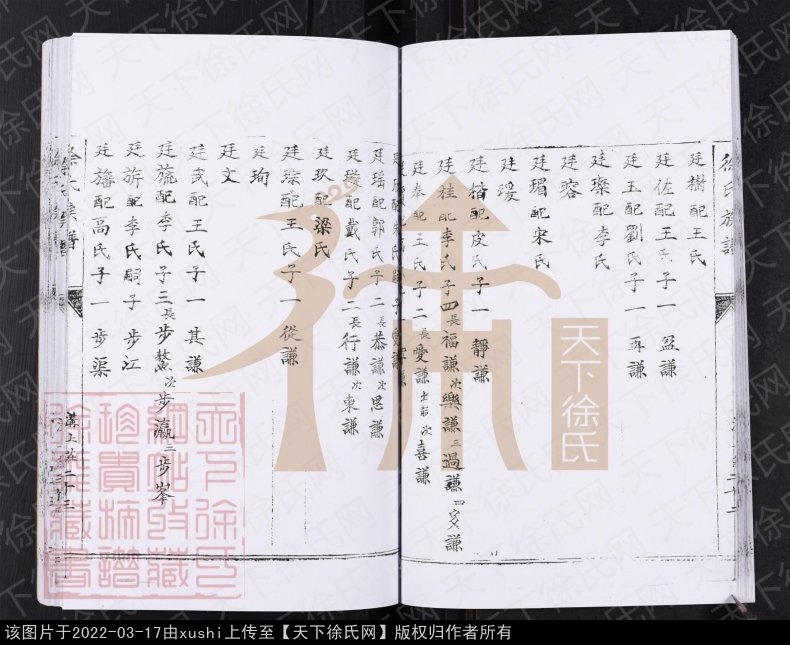 徐氏族譜
廷樹配王氏
廷佐配王氏子一盆謙
廷玉配劉氏子一再謙
廷璨配李氏
廷容
廷瑂配宋氏
廷瑗
廷楷配皮氏子一靜謙
廷桂配李氏子四長福謙次興謙三過謙四安謙
廷奉配王氏子二長愛謙出嗣次喜謙
廷瑶配郭氏子二長恭謙次思謙
廷璇配戴氏子二長行謙次東謙
廷玖配梁氏
廷琮配王氏子一從謙
廷珣
廷文
廷彧配王氏子一其謙
廷旒配李氏子三長步鰲次步瀛三步峯
廷旂配李氏嗣子步江
廷旛配高氏子一步渠
徐氏族譜
天下徐氏
天下徐氏网
该图片于2022-03-17由xushi上传至【天下徐氏网】版权归作者所有